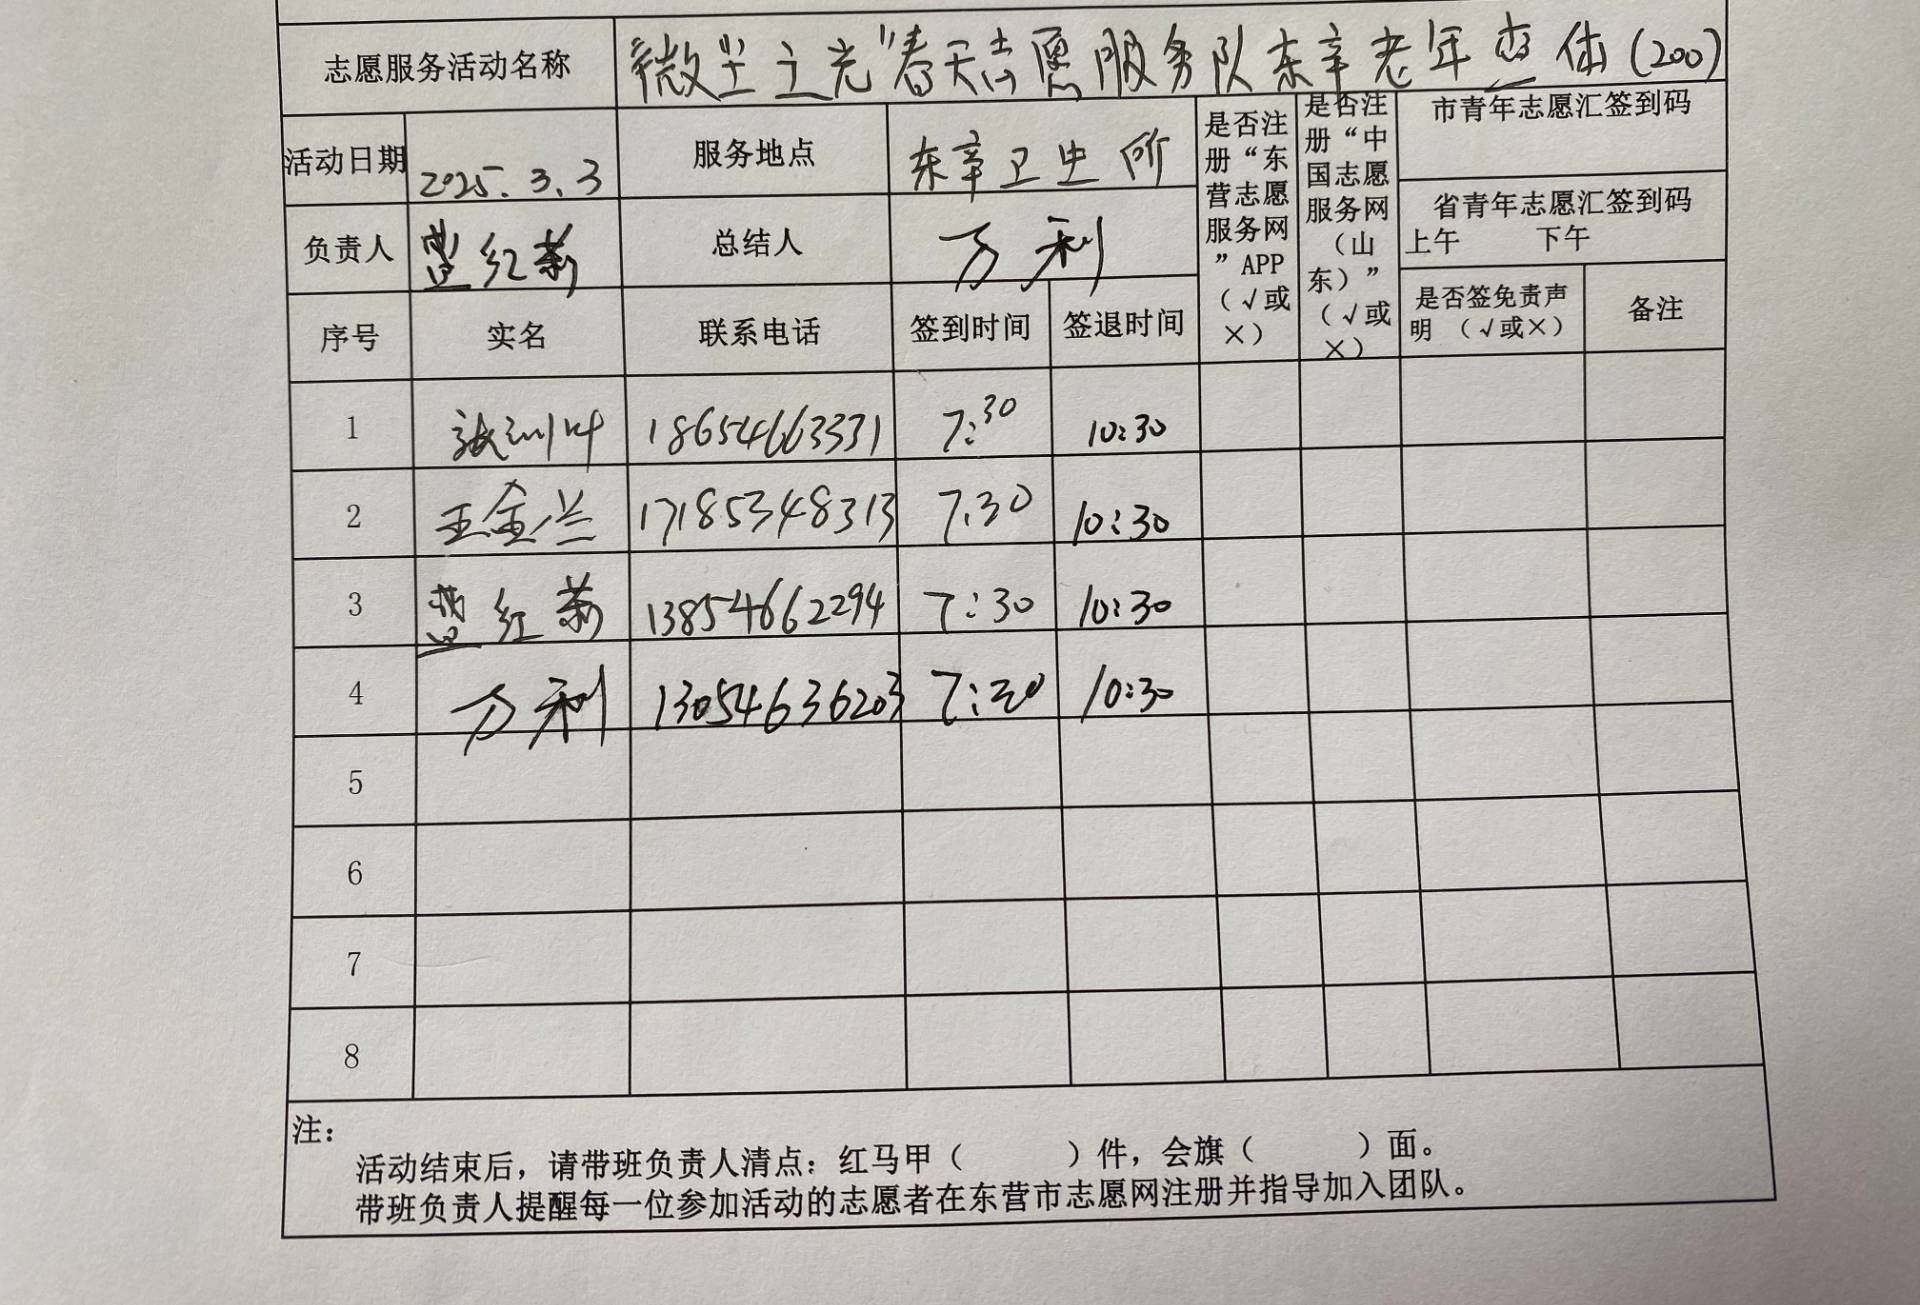 志愿服务活动名称 “微尘之光”春天志愿服务队东辛老年查体(200)
活动日期 2025.3.3 服务地点 东辛卫生所
是否注册“东营志愿服务网”APP（√或×）
是否注册“中国志愿服务网（山东）”（√或×）
市青年志愿汇签到码
省青年志愿汇签到码
上午 下午
负责人 红 总结人 万利
序号 实名 联系电话 签到时间 签退时间 是否签免责声明（√或×） 备注
1 张 18654663331 7:30 10:30
2 王金兰 17185348313 7:30 10:30
3 红 13854662294 7:30 10:30
4 万利 13054636203 7:30 10:30
5
6
7
8
注：
活动结束后，请带班负责人清点：红马甲（ ）件，会旗（ ）面。
带班负责人提醒每一位参加活动的志愿者在东营市志愿网注册并指导加入团队。